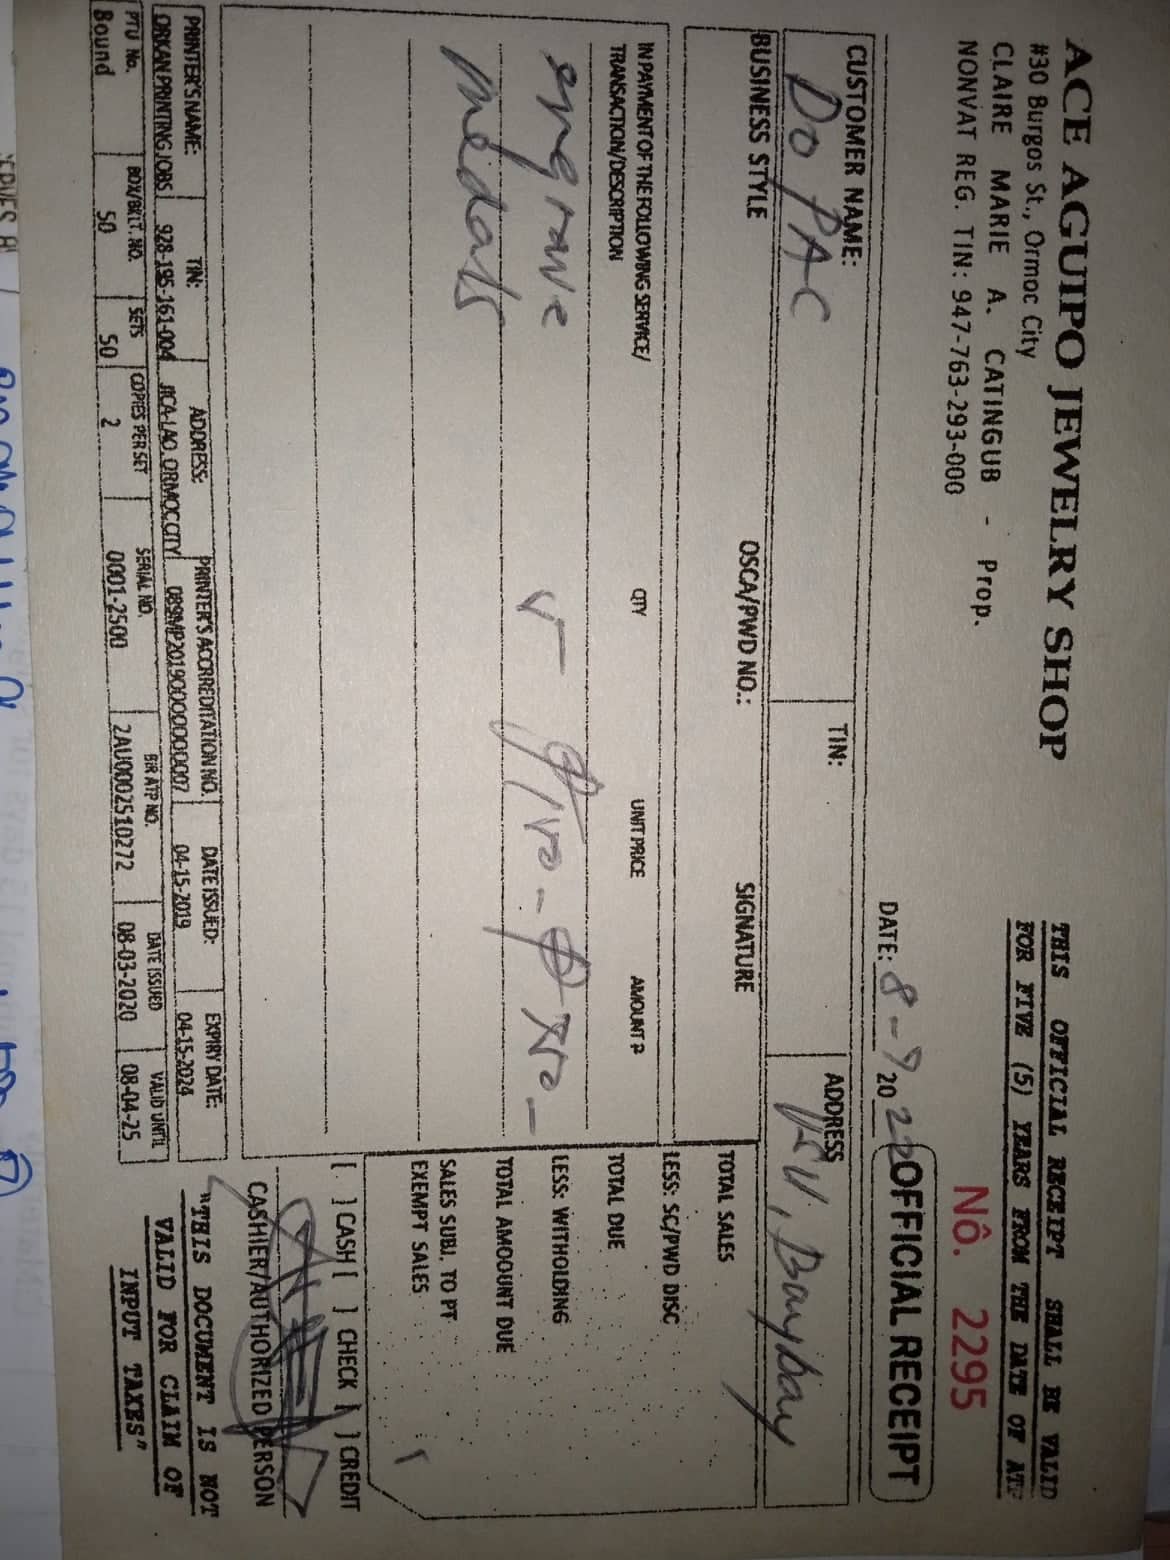 ACE AGUIPO JEWELRY SHOP
#30 Burgos St., Ormoc City
CLAIRE MARIE A. CATINGUB - Prop.
NONVAT REG. TIN: 947-763-293-000
THIS OFFICIAL RECEIPT SHALL BE VALID
FOR FIVE (5) YEARS FROM THE DATE OF ATP
Nō. 2295
OFFICIAL RECEIPT
DATE: 8-9, 2022
CUSTOMER NAME: TIN: ADDRESS
DOPAC Baybay
BUSINESS STYLE OSCA/PWD NO.: SIGNATURE
IN PAYMENT OF THE FOLLOWING SERVICE/
TRANSACTION/DESCRIPTION QTY UNIT PRICE AMOUNT ₱
engrave
medals
TOTAL SALES
LESS: SC/PWD DISC
TOTAL DUE
LESS: WITHOLDING
TOTAL AMOUNT DUE
SALES SUBJ. TO PT
EXEMPT SALES
[ ] CASH [ ] CHECK [ ] CREDIT
CASHIER/AUTHORIZED PERSON
PRINTER'S NAME: TIN: ADDRESS: PRINTER'S ACCREDITATION NO. DATE ISSUED: EXPIRY DATE:
ORKAN PRINTING JOBS 928-195-161-004 JICA-LAO, ORMOC CITY 089MP20190000000007 04-15-2019 04-15-2024
PTU No. BOX/BKLT. NO. SETS COPIES PER SET SERIAL NO. BIR ATP NO. DATE ISSUED VALID UNTIL
Bound 50 50 2 0001-2500 2AU0002510272 08-03-2020 08-04-25
"THIS DOCUMENT IS NOT
VALID FOR CLAIM OF
INPUT TAXES"